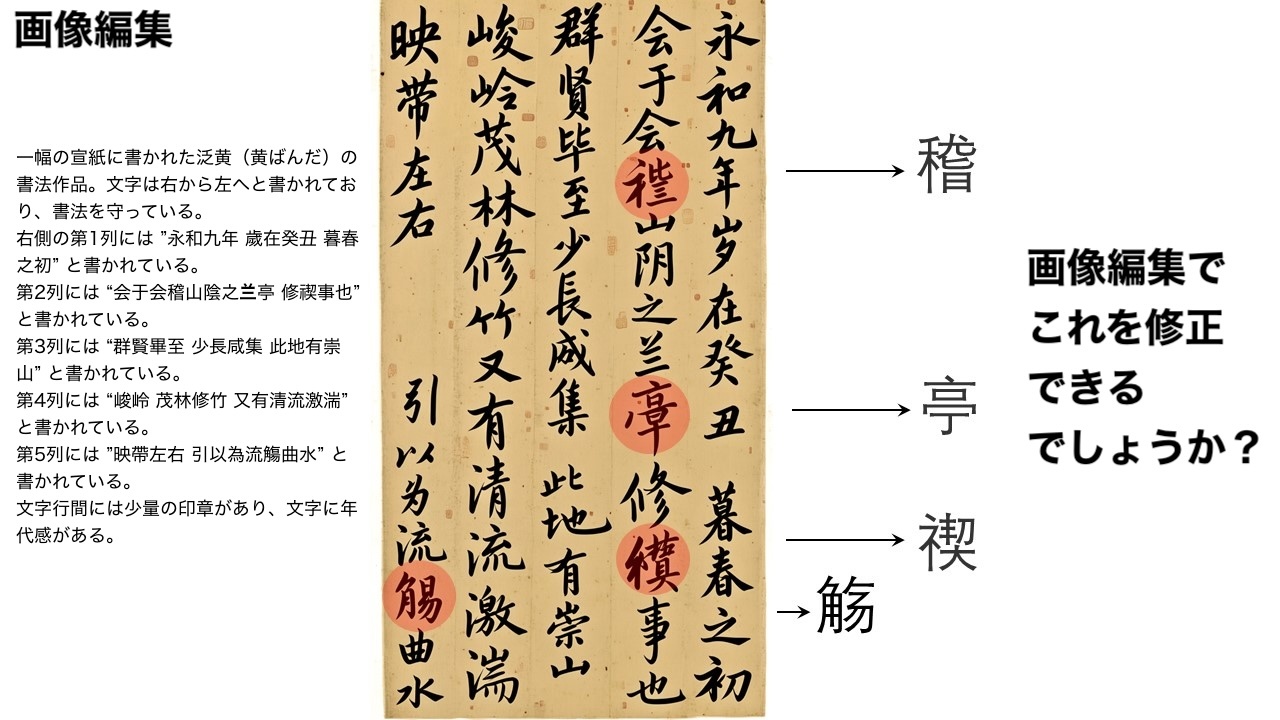 画像編集
一幅の宣紙に書かれた泛黄（黄ばんだ）の
書法作品。文字は右から左へと書かれてお
り、書法を守っている。
右側の第1列には ”永和九年 歳在癸丑 暮春
之初” と書かれている。
第2列には “会于会稽山陰之兰亭 修禊事也”
と書かれている。
第3列には “群賢畢至 少長咸集 此地有崇
山” と書かれている。
第4列には “峻岭 茂林修竹 又有清流激湍”
と書かれている。
第5列には ”映帶左右 引以為流觴曲水” と
書かれている。
文字行間には少量の印章があり、文字に年
代感がある。
永和九年岁在癸丑 暮春之初
会于会山阴之兰修事也
群賢毕至少長咸集 此地有崇山
峻岭茂林修竹又有清流激湍
映带左右 引以为流曲水
稽
亭
禊
觞
画像編集で
これを修正
できる
でしょうか？